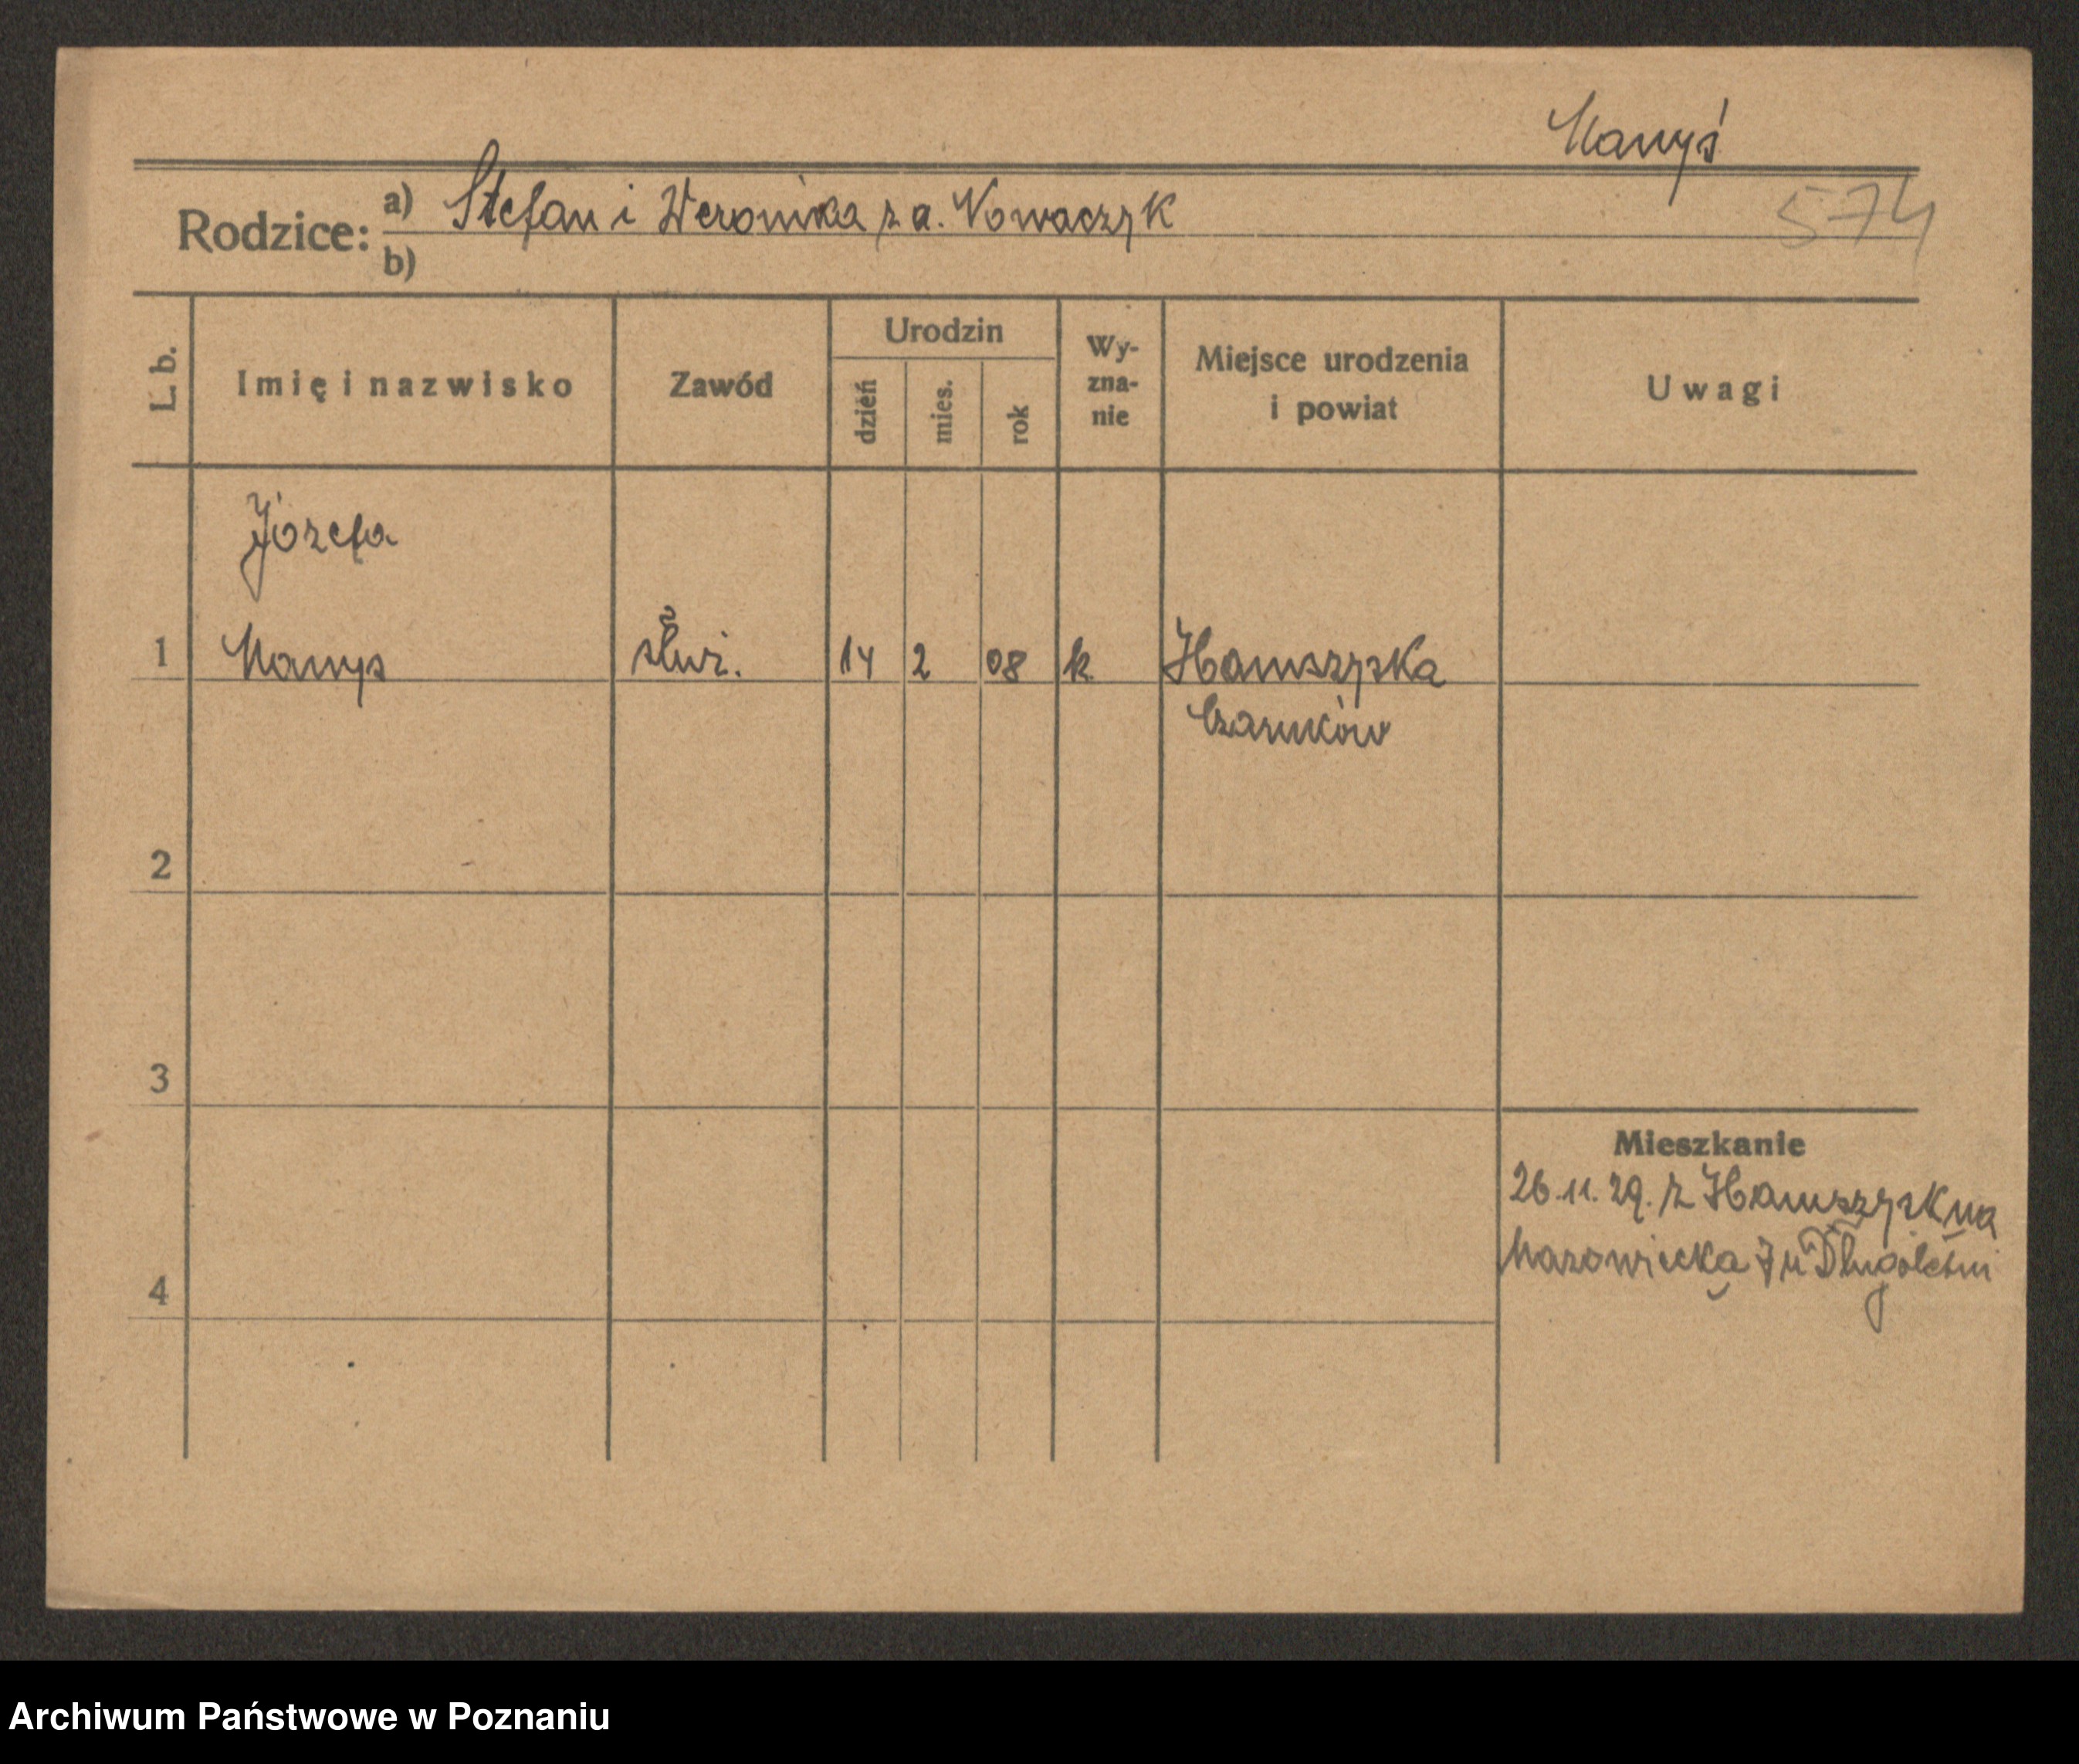 Manyś
Rodzice: a) Stefan i Weronika z d. Nowaczyk
574
b)
L. b.
Imię i nazwisko
Zawód
Urodzin
dzień
mies.
rok
Wy-
zna-
nie
Miejsce urodzenia
i powiat
Uwagi
Józefa
1 Manys służ. 14 2 08 k Hamszyska
Czarnków
2
3
Mieszkanie
26.11.29. z Hamszysk na
Mazowiecką 7 u
4
Archiwum Państwowe w Poznaniu